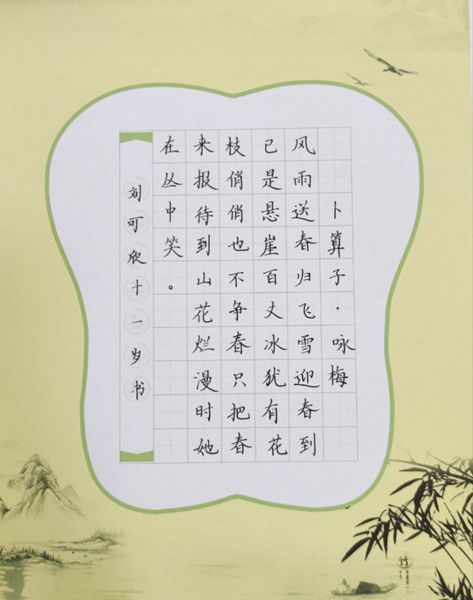 卜算子·咏梅
风雨送春归飞雪迎春到
已是悬崖百丈冰犹有花
枝俏俏也不争春只把春
来报待到山花烂漫时她
在丛中笑。
刘可欣十一岁书